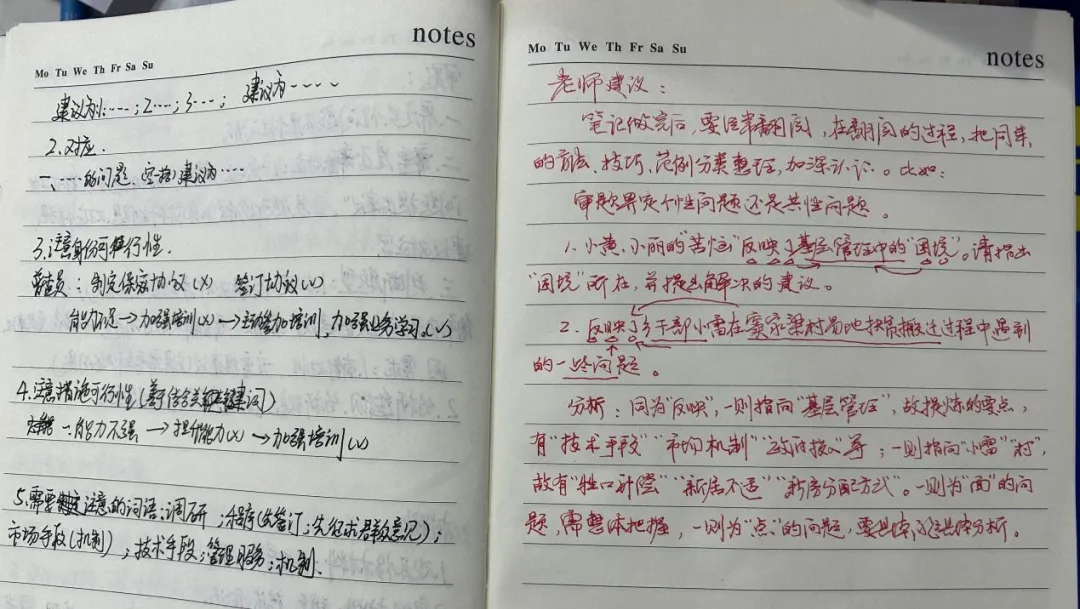 notes
Mo Tu We Th Fr Sa Su
建议为1……;2……;3……; 建议为……
2.对应.
一、……的问题.(空格)建议为……
3.注意身份可行性.
: 制定保定协议(×) 签订协议(√)
能力不足→加强培训(×)→主动参加培训,加强业务学习(√)
4.注意措施可行性(善于结合关键词)
一.能力不强→提升能力(×)→加强培训(√)
5.需要注意的词语:调研;程序(先签订;先征求群众意见);
市场手段(机制);技术手段;管理服务;机制.
notes
Mo Tu We Th Fr Sa Su
老师建议:
笔记做完后,要经常翻阅,在翻阅的过程,把同类
的方法、技巧、范例分类整理,加深认识。比如:
审题界定个性问题还是共性问题。
1.小黄、小丽的“苦恼”反映了基层管理中的“困境”。请指出
“困境”所在,并提出解决的建议。
2.反映了乡干部小雷在窦家梁村易地扶贫搬迁过程中遇到
的一些问题。
分析:同为“反映”,一则指向“基层管理”,故提炼的要点,
有“技术手段”“市场机制”“政府接心”等;一则指向“小雷”“村”,
故有“牲口补偿”“新居不适”“新房分配方式”。一则为“面”的问
题,需整体把握,一则为“点”的问题,要具体分析。